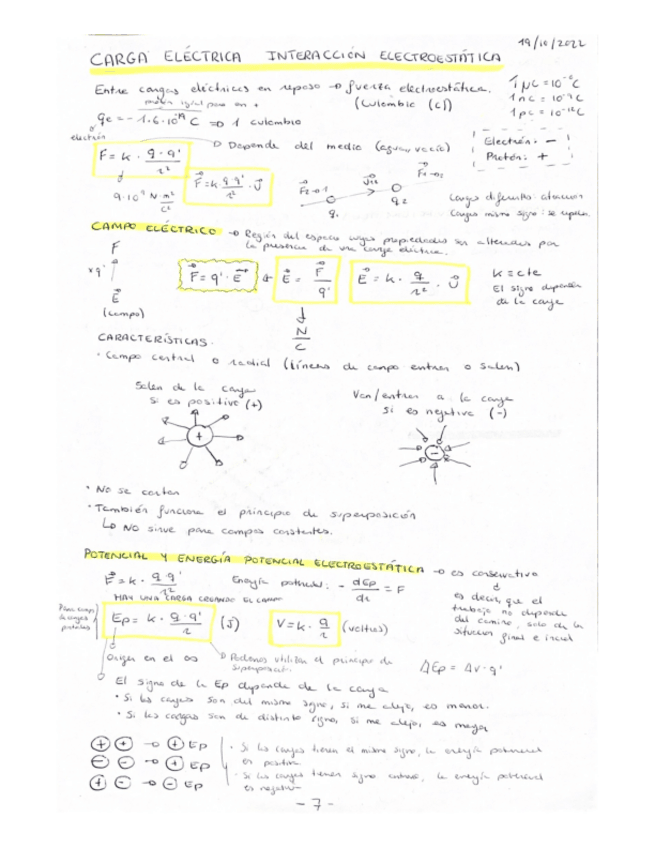 19/10/2022
CARGA ELÉCTRICA INTERACCIÓN ELECTROESTÁTICA
Entre cargas eléctricas en reposo → fuerza electroestática.
1 μC = 10⁻⁶ C
pero igual para en +
(Culombio (C))
1 nC = 10⁻⁹ C
qe = -1.6·10⁻¹⁹ C ⇒ 1 culombio
1 pC = 10⁻¹²C
electrón
F = k · q·q' / r²
→ Depende del medio (agua, vacío)
Electrón: -
Protón: +
F = k · q·q' / r² · U
9·10⁹ N·m² / C²
F2→1
F1→2
q1
q2
Cargas diferentes: atracción
Cargas mismo signo: se repelen.
CAMPO ELÉCTRICO → Región del espacio cuyas propiedades son alteradas por
la presencia de una carga eléctrica.
F
q'
E
(campo)
F = q' · E
E = F / q'
E = k · q / r² · U
k = cte
El signo depende
de la carga
N / C
CARACTERÍSTICAS.
· Campo central o radial (Líneas de campo entran o salen)
Salen de la carga
si es positiva (+)
Van/entran a la carga
si es negativa (-)
+
-
· No se cortan
· También funciona el principio de superposición
↳ NO sirve para campos constantes.
POTENCIAL Y ENERGÍA POTENCIAL ELECTROESTÁTICA → es conservativo
F = k · q·q' / r²
Energía potencial: - dEp / dr = F
HAY UNA CARGA CREANDO EL CAMPO
es decir, que el
trabajo no depende
del camino, solo de la
situación final e inicial
Para
de cargas
puntuales
Ep = k · q·q' / r (J)
V = k · q / r (voltios)
Origen en el ∞
→ Podemos utilizar el principio de
superposición.
ΔEp = ΔV·q'
El signo de la Ep depende de la carga
· Si las cargas son del mismo signo, si me alejo, es menor.
· Si las cargas son de distinto signo, si me alejo, es mayor
+ + → + Ep
· Si las cargas tienen el mismo signo, la energía potencial
es positiva
- - → + Ep
+ - → - Ep
· Si las cargas tienen signo contrario, la energía potencial
es negativa
- 7 -